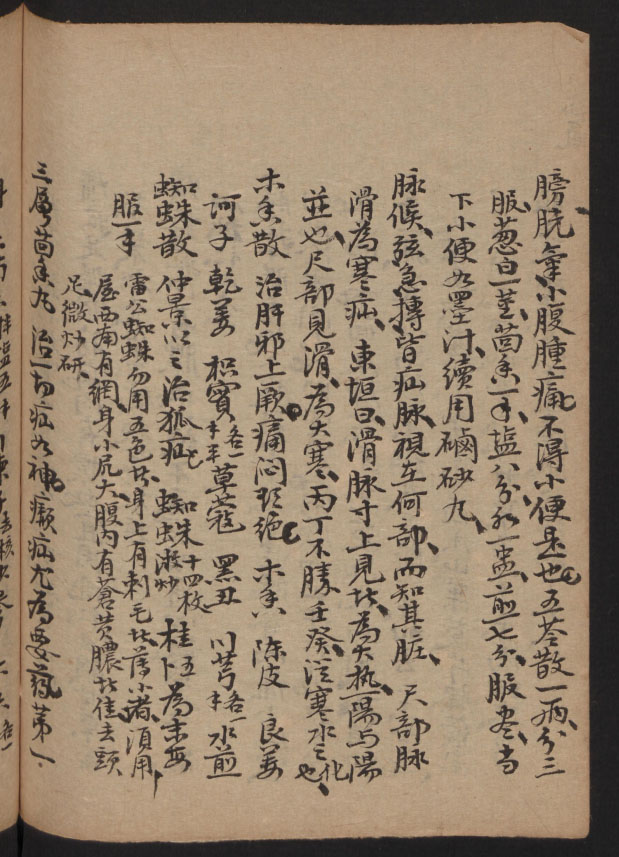 膀胱氣小腹腫痛不得小便是也五苓散一兩分三
服葱白一莖茴香一錢塩八分水一盞煎七分服盡当
下小便如墨汁續用硇砂丸
脉候弦急搏皆疝脉視在何部而知其脏尺部脉
滑為寒疝東垣曰滑脉寸上見此為大热陽与陽
並也尺部見滑為大寒丙丁不勝壬癸從寒水之化也
木香散 治肝邪上厥痛闷欲絶 木香 陳皮 良姜
訶子 乾姜 枳實各一錢半 草蔻 黑丑 川芎各一錢 水煎
蜘蛛散 仲景以之治狐疝 蜘蛛十四枚微炒 桂五卜為末每
服一錢
雷公蜘蛛勿用五色此身上有刺毛此薄小者須用
屋西南有網身小尻大腹内有蒼黄膿此佳去頭
足微炒研
三層茴香丸 治一切疝如神癩疝尤為要藥第一